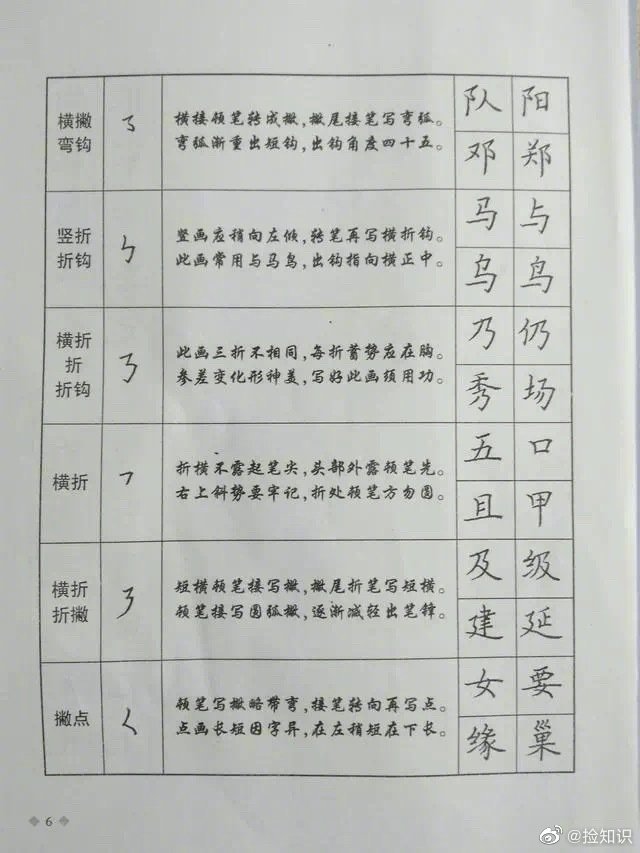 横撇
弯钩
㇌
横接领笔转成撇，撇尾接笔写弯弧。
弯弧渐重出短钩，出钩角度四十五。
队 阳
邓 郑
竖折
折钩
㇉
竖画应稍向左倾，转笔再写横折钩。
此画常用与马鸟，出钩指向横正中。
马 与
乌 鸟
横折
折
折钩
㇡
此画三折不相同，每折蓄势应在胸。
参差变化形神美，写好此画须用功。
乃 仍
秀 场
横折
㇕
折横不露起笔尖，头部外露领笔先。
右上斜势要牢记，折处领笔方勿圆。
五 口
且 甲
横折
折撇
㇋
短横领笔接写撇，撇尾折笔写短横。
领笔接写圆弧撇，逐渐减轻出笔锋。
及 级
建 延
撇点
㇛
领笔写撇略带弯，接笔转向再写点。
点画长短因字异，在左稍短在下长。
女 要
缘 巢
◆ 6 ◆
@捡知识